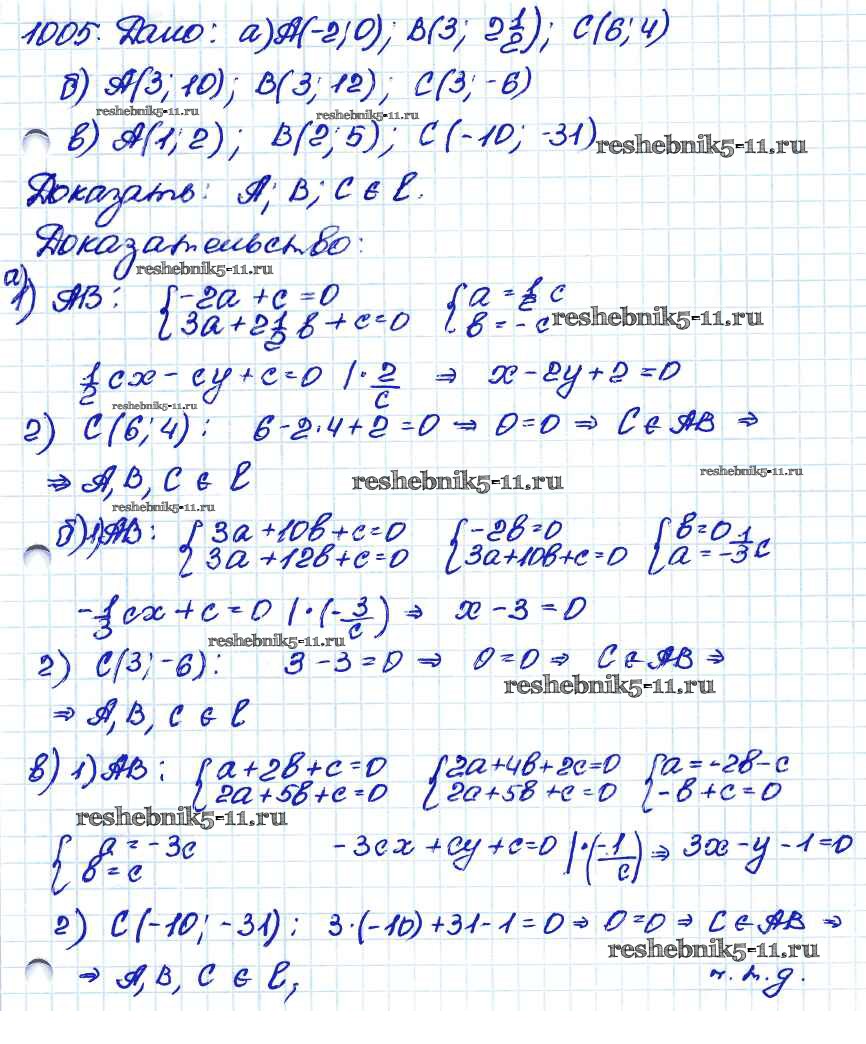 1005. Дано: а) A(-2; 0); B(3; 2 1/2); C(6; 4)
б) A(3; 10); B(3; 12); C(3; -6)
reshebnik5-11.ru reshebnik5-11.ru
в) A(1; 2); B(2; 5); C(-10; -31) reshebnik5-11.ru
Доказать: A; B; C ∈ l.
Доказательство:
reshebnik5-11.ru
а)
1) AB: { -2a + c = 0 { a = 1/2 c
3a + 2 1/2 b + c = 0 b = -c reshebnik5-11.ru
1/2 cx - cy + c = 0 | · 2/c ⇒ x - 2y + 2 = 0
reshebnik5-11.ru
2) C(6; 4): 6 - 2·4 + 2 = 0 ⇒ 0 = 0 ⇒ C ∈ AB ⇒
⇒ A, B, C ∈ l reshebnik5-11.ru reshebnik5-11.ru
reshebnik5-11.ru
б) 1) AB: { 3a + 10b + c = 0 { -2b = 0 { b = 0
3a + 12b + c = 0 3a + 10b + c = 0 a = -1/3 c
-1/3 cx + c = 0 | · (-3/c) ⇒ x - 3 = 0
reshebnik5-11.ru
2) C(3; -6): 3 - 3 = 0 ⇒ 0 = 0 ⇒ C ∈ AB ⇒
reshebnik5-11.ru
⇒ A, B, C ∈ l
в) 1) AB: { a + 2b + c = 0 { 2a + 4b + 2c = 0 { a = -2b - c
2a + 5b + c = 0 2a + 5b + c = 0 -b + c = 0
reshebnik5-11.ru
{ a = -3c -3cx + cy + c = 0 | · (-1/c) ⇒ 3x - y - 1 = 0
b = c
2) C(-10; -31): 3·(-10) + 31 - 1 = 0 ⇒ 0 = 0 ⇒ C ∈ AB ⇒
reshebnik5-11.ru
⇒ A, B, C ∈ l, ч.т.д.